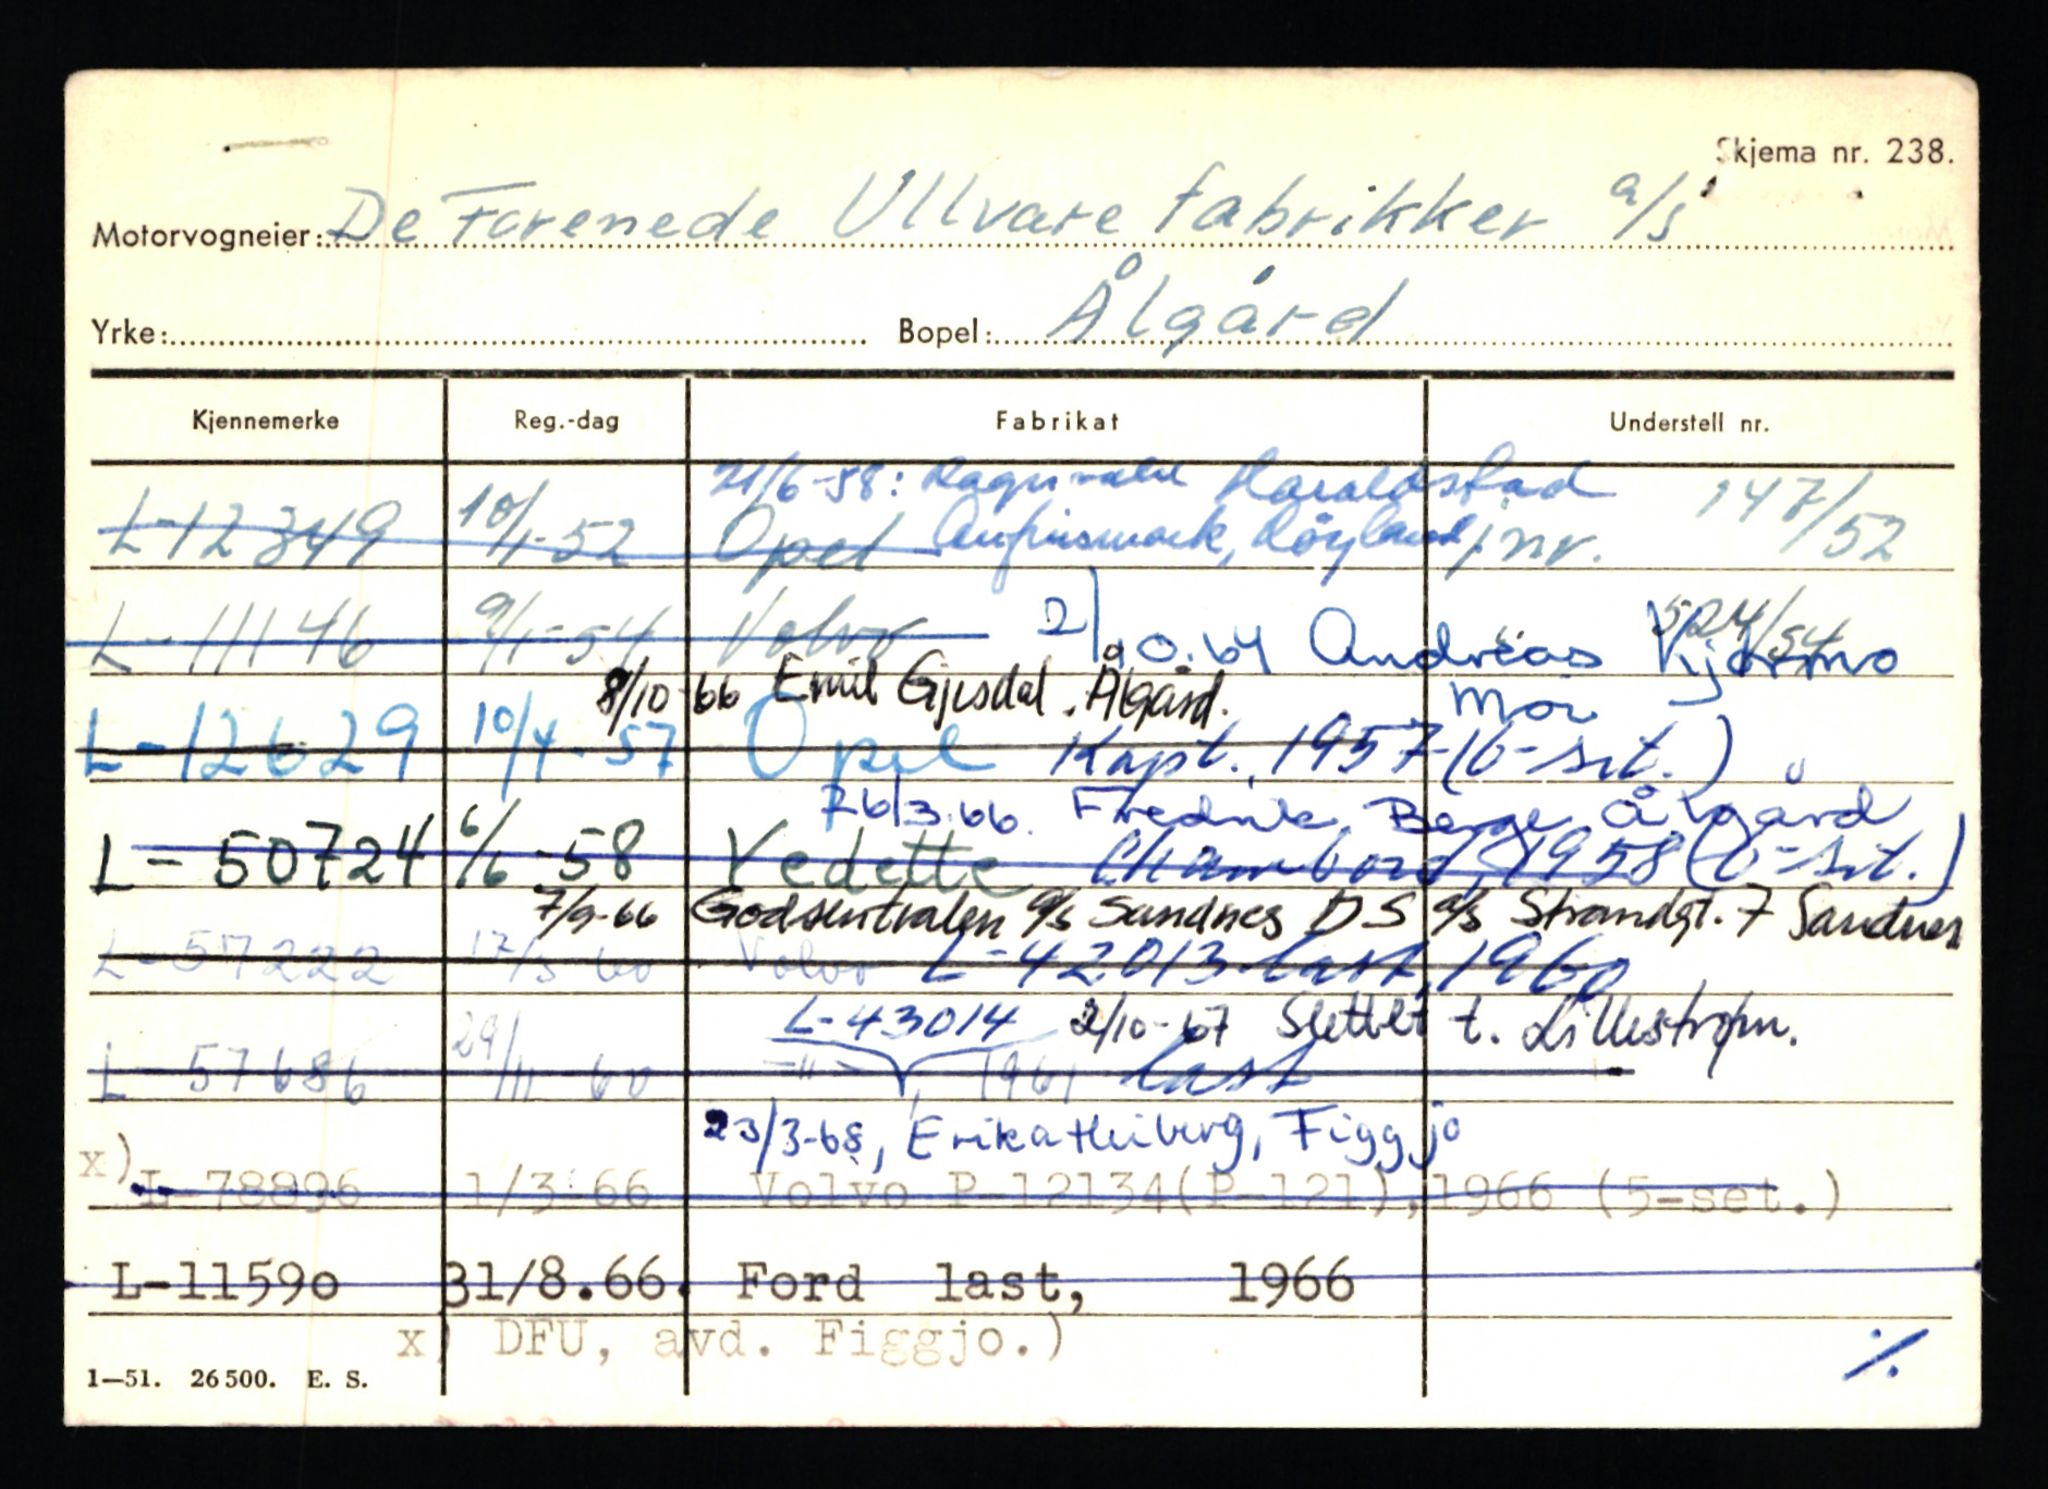 Skjema nr. 238.
Motorvogneier: De Forenede Ullvarefabrikker a/s
Yrke: Bopel: Ålgård
Kjennemerke Reg.-dag Fabrikat Understell nr.
21/6-58: Haraldstad
L-12349 10/1-52 Opel jnr. 147/52
L-11146 9/1-54 Volvo 2/10.64 Andreas 524/54
8/10-66 Emil Gjesdal. Ålgård. Moi
L-12629 10/4-57 Opel Kapt. 1957 (6-sit.)
26/3.66. Fredrik Berge Ålgård
L-50724 6/6-58 Vedette Chambord, 1958 (6-sit.)
7/9-66 Godssentralen a/s Sandnes DS a/s Strandgt. 7 Sandnes
L-57222 17/3 60 Volvo L-42013 last, 1960
L-43014 2/10-67 Slettet t. Lillestrøm.
L-57686 29/11 60 -"-, 1961 last
23/3-68, Erika Heiberg, Figgjo
x) L-78896 1/3-66 Volvo P-12134(P-121), 1966 (5-set.)
L-11590 31/8.66. Ford last, 1966
x) DFU, avd. Figgjo.)
1—51. 26500. E. S. ./.